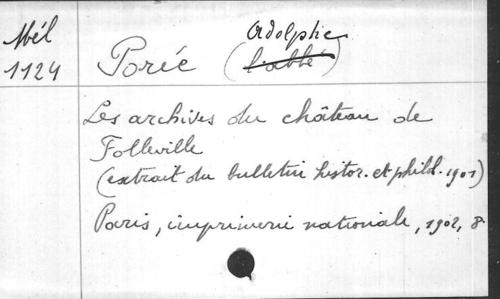 Mél
1124
Porée (l'abbé) Adolphe
Les archives du château de
Folleville
(extrait du bulletin histor. et philol. 1901)
Paris, imprimerie nationale, 1902, 8°